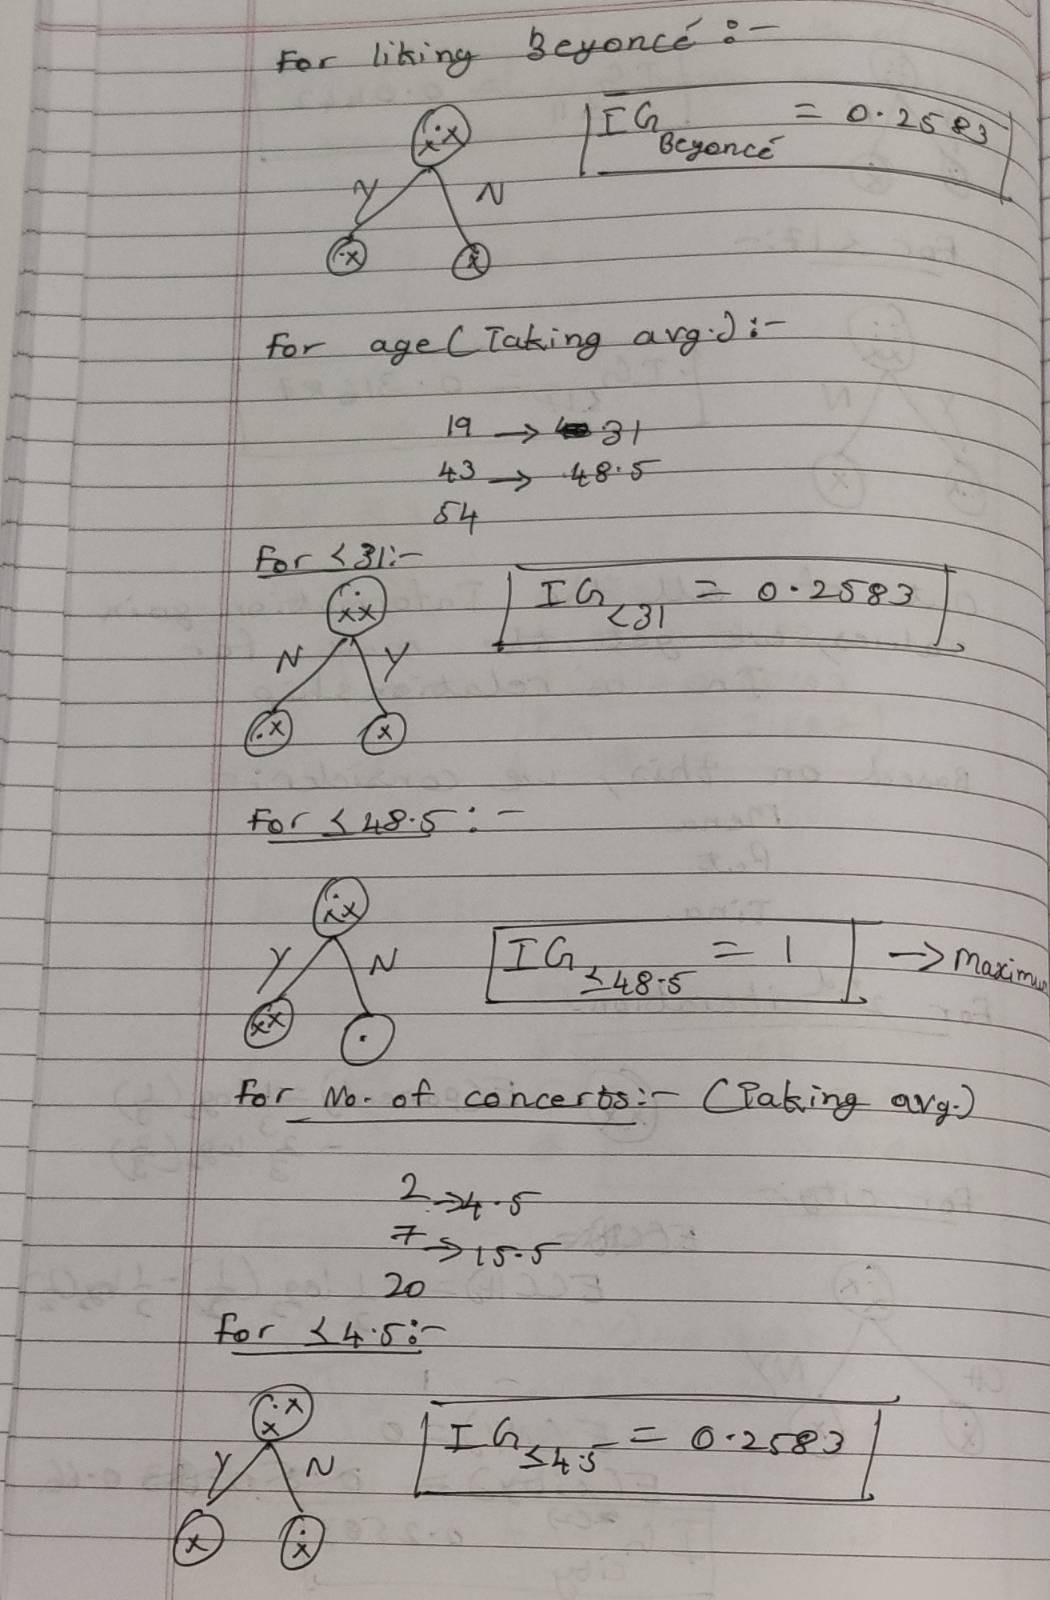 For liking Beyoncé :-
IG Beyoncé = 0.2583
Y N
For age (Taking avg.) :-
19 → 31
43 → 48.5
54
For <31:-
IG <31 = 0.2583
N Y
For ≤48.5 :-
Y N
IG ≤48.5 = 1 → Maximum
For No. of concerts:- (Taking avg.)
2 → 4.5
7 → 15.5
20
For ≤4.5:-
IG ≤4.5 = 0.2583
Y N